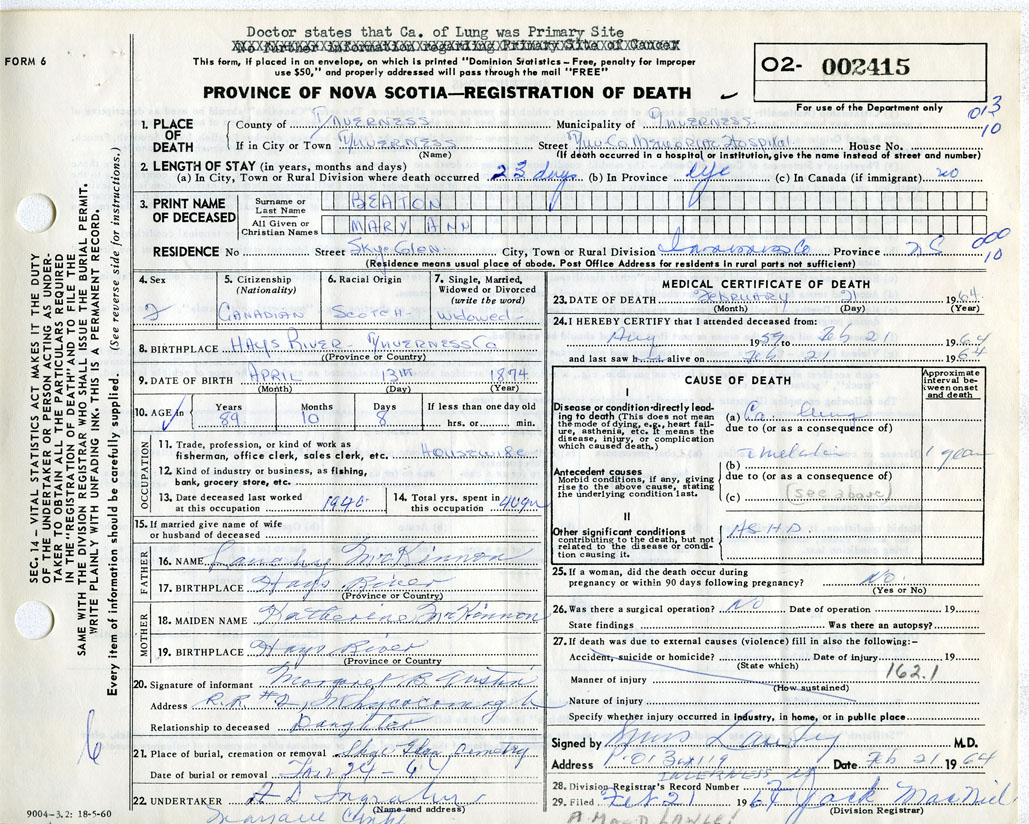 Doctor states that Ca. of Lung was Primary Site
No further information regarding Primary Site of Cancer
FORM 6
This form, if placed in an envelope, on which is printed "Dominion Statistics – Free, penalty for improper
use $50," and properly addressed will pass through the mail "FREE"
O2- 002415
PROVINCE OF NOVA SCOTIA—REGISTRATION OF DEATH
For use of the Department only
013
10
1. PLACE OF DEATH
County of Inverness Municipality of Inverness
If in City or Town Inverness Street Inv. Co Memorial Hospital House No.
(Name) (If death occurred in a hospital or institution, give the name instead of street and number)
2. LENGTH OF STAY (in years, months and days)
(a) In City, Town or Rural Division where death occurred 23 days (b) In Province life (c) In Canada (if immigrant) no
3. PRINT NAME OF DECEASED
Surname or Last Name BEATON
All Given or Christian Names MARY ANN
000
10
RESIDENCE No Street Skye Glen City, Town or Rural Division Inverness Co Province N S
(Residence means usual place of abode. Post Office Address for residents in rural parts not sufficient)
4. Sex F
5. Citizenship (Nationality) CANADIAN
6. Racial Origin SCOTCH
7. Single, Married, Widowed or Divorced (write the word) Widowed
8. BIRTHPLACE HAYS RIVER - INVERNESS Co
(Province or Country)
9. DATE OF BIRTH APRIL 13th 1874
(Month) (Day) (Year)
10. AGE in Years 89 Months 10 Days 8 If less than one day old hrs. or min.
OCCUPATION
11. Trade, profession, or kind of work as
fisherman, office clerk, sales clerk, etc. Housewife
12. Kind of industry or business, as fishing,
bank, grocery store, etc.
13. Date deceased last worked
at this occupation 1940
14. Total yrs. spent in
this occupation 40 yrs
15. If married give name of wife
or husband of deceased
FATHER
16. NAME Lauchy McKinnon
17. BIRTHPLACE Hays River
(Province or Country)
MOTHER
18. MAIDEN NAME Katherine McKinnon
19. BIRTHPLACE Hays River
(Province or Country
20. Signature of informant Margaret B. Austin
Address R.R #2, Whycocomagh
Relationship to deceased Daughter
21. Place of burial, cremation or removal Skye Glen Cemetry
Date of burial or removal 24 - 64
22. UNDERTAKER
(Name and address)
9004-3.2: 18-5-60
MEDICAL CERTIFICATE OF DEATH
23. DATE OF DEATH February 21 1964
(Month) (Day) (Year)
24. I HEREBY CERTIFY that I attended deceased from:
Aug 1959 to Feb 21 1964
and last saw h alive on Feb 21 1964
CAUSE OF DEATH
Approximate interval between onset and death
I
Disease or condition directly leading to death (This does not mean the mode of dying, e.g., heart failure, asthenia, etc. It means the disease, injury, or complication which caused death.)
(a) Ca. lung
due to (or as a consequence of)
Antecedent causes
Morbid conditions, if any, giving rise to the above cause, stating the underlying condition last.
(b) 1 year
due to (or as a consequence of)
(c) (see above)
II
Other significant conditions
contributing to the death, but not related to the disease or condition causing it.
A.S.H.D.
25. If a woman, did the death occur during
pregnancy or within 90 days following pregnancy? No.
(Yes or No)
26. Was there a surgical operation? NO Date of operation 19
State findings Was there an autopsy?
27. If death was due to external causes (violence) fill in also the following:–
Accident, suicide or homicide? Date of injury 19
(State which)
162.1
Manner of injury
(How sustained)
Nature of injury
Specify whether injury occurred in Industry, in home, or in public place
Signed by M.D.
Address Date Feb 21 1964
INVERNESS
28. Division Registrar's Record Number
29. Filed Feb 21 1964 Jack MacNeil
(Division Registrar)
SEC. 14 – VITAL STATISTICS ACT MAKES IT THE DUTY
OF THE UNDERTAKER OR PERSON ACTING AS UNDER-
TAKER TO OBTAIN ALL THE PARTICULARS REQUIRED
IN THE "REGISTRATION OF DEATH" AND TO FILE THE
SAME WITH THE DIVISION REGISTRAR WHO SHALL ISSUE THE BURIAL PERMIT.
WRITE PLAINLY WITH UNFADING INK. THIS IS A PERMANENT RECORD.
Every item of information should be carefully supplied. (See reverse side for instructions.)
6